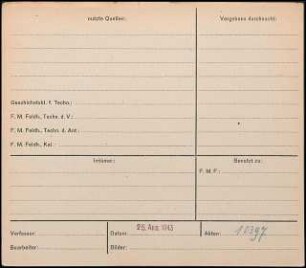 nutzte Quellen:
Vergebens durchsucht:
Geschichtsbl. f. Techn.:
F. M. Feldh., Techn. d. V.:
F. M. Feldh., Techn. d. Ant.:
F. M. Feldh., Kal.
Irrtümer:
Benutzt zu:
F. M. F.:
Verfasser:
Datum:
25. Aug. 1943
Akten:
10397
Bearbeiter:
Bilder: